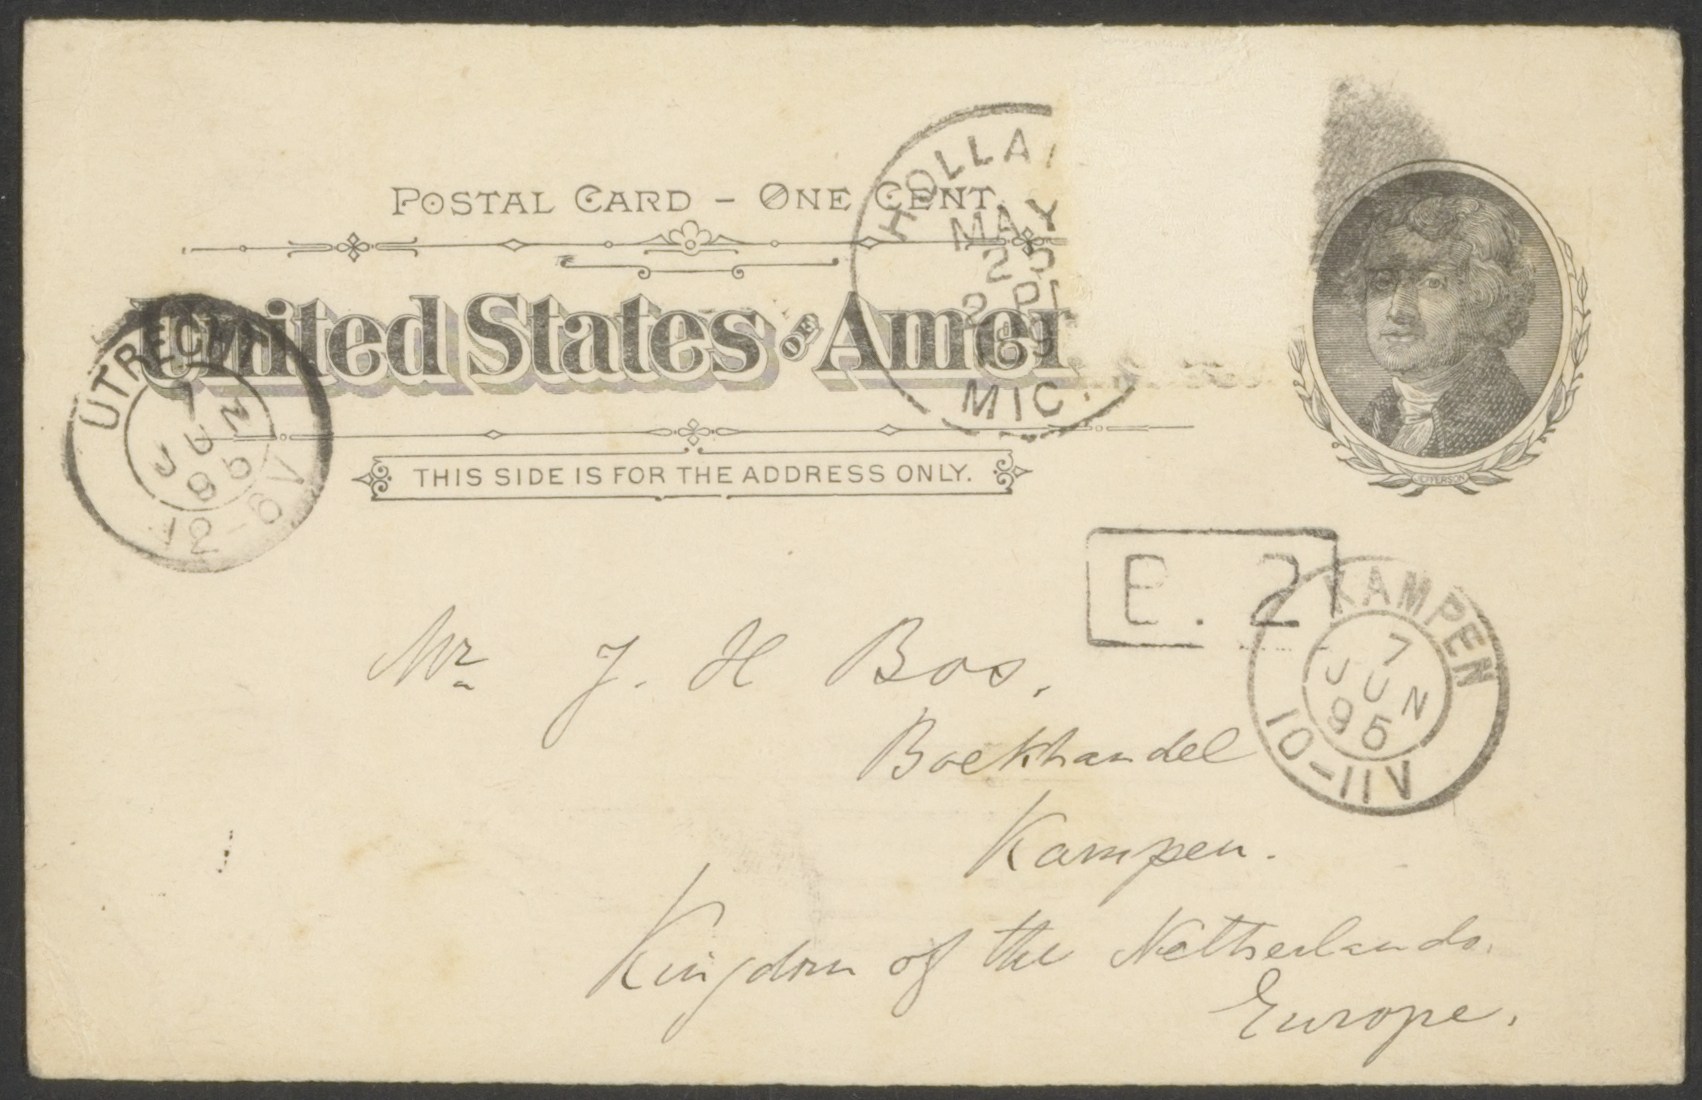 POSTAL CARD – ONE CENT.
United States OF Amer
THIS SIDE IS FOR THE ADDRESS ONLY.
JEFFERSON
HOLLA
MAY
MIC.
UTRECHT
7
JUN
95
12-6V
P. 2
KAMPEN
7
JUN
95
10-11V
Mr J. H Bos.
Boekhandel
Kampen.
Kingdom of the Netherlands.
Europe.